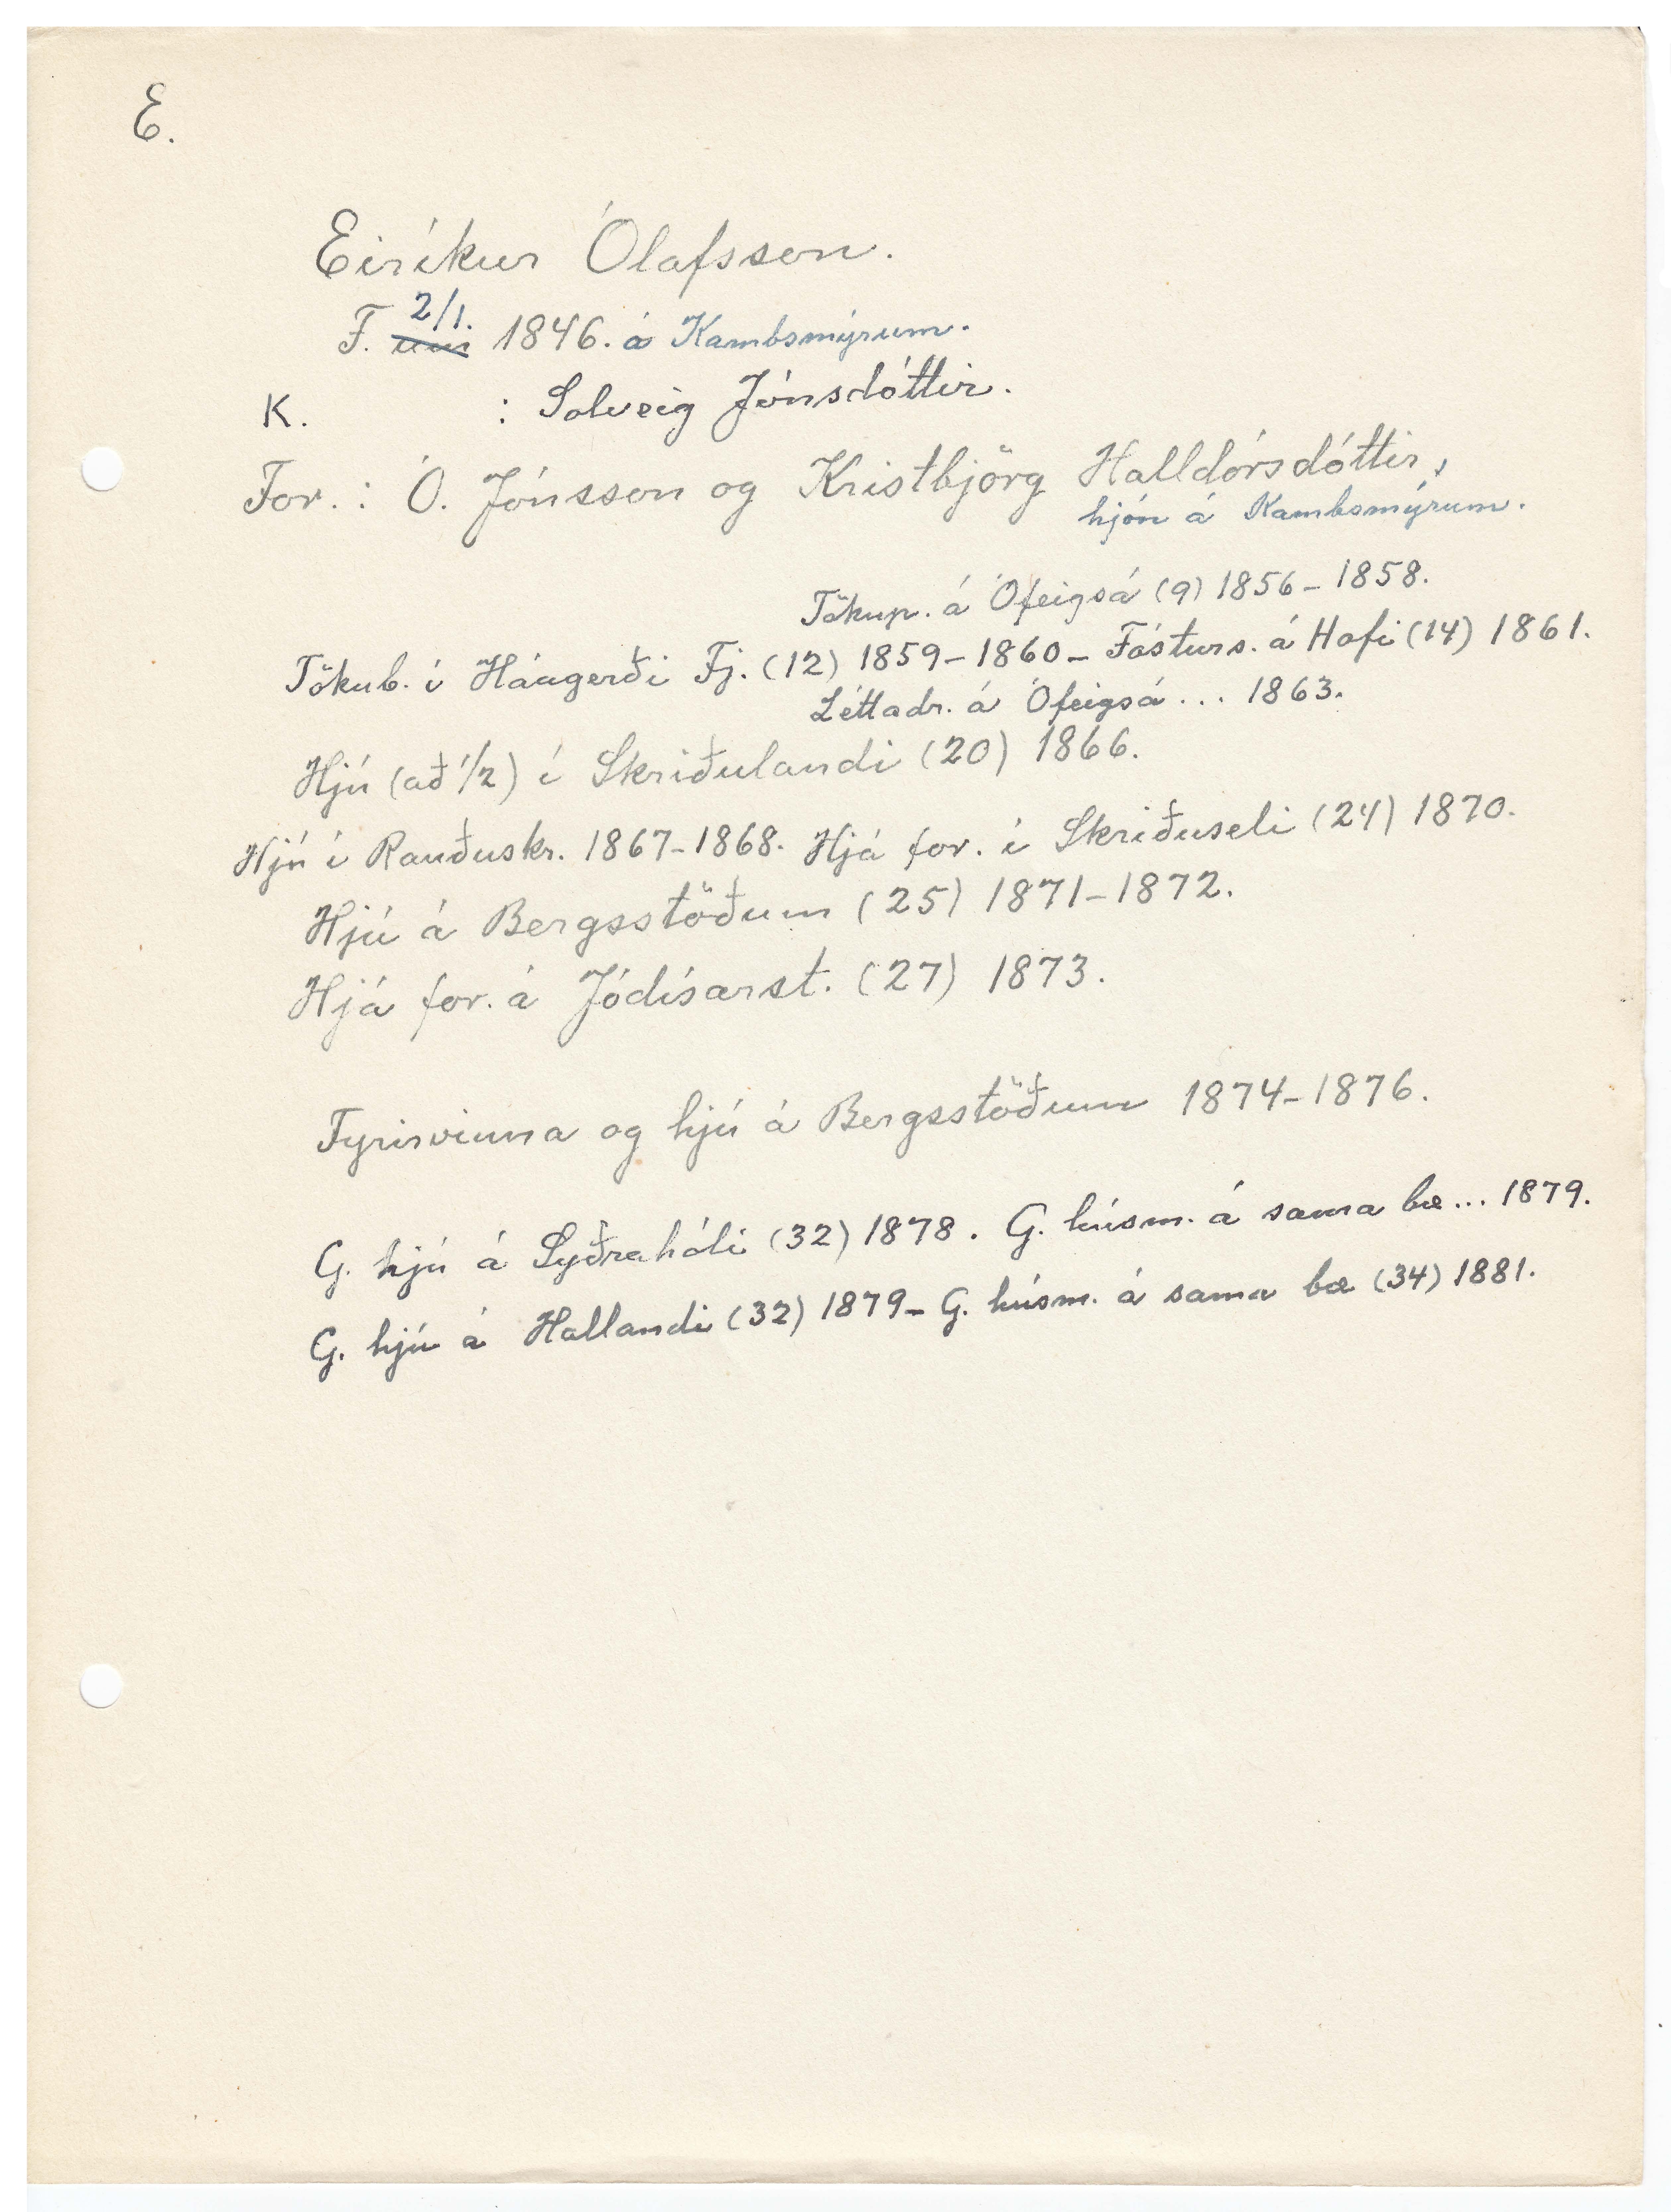 E.
Eiríkur Ólafsson.
F. 2/1. um 1846. á Kambsmýrum.
K. : Solveig Jónsdóttir.
For. : Ó. Jónsson og Kristbjörg Halldórsdóttir,
hjón á Kambsmýrum.
Tökup. á Ófeigsá (9) 1856-1858.
Tökub. í Háagerði Fj. (12) 1859-1860- Fósturs. á Hofi (14) 1861.
Léttadr. á Ófeigsá... 1863.
Hjú (að 1/2) í Skriðulandi (20) 1866.
Hjú í Rauðuskr. 1867-1868. Hjá for. í Skriðuseli (24) 1870.
Hjú á Bergsstöðum (25) 1871-1872.
Hjá for. á Jódísarst. (27) 1873.
Fyrirvinna og hjú á Bergsstöðum 1874-1876.
G. hjú á Syðrahóli (32) 1878. G. húsm. á sama bæ... 1879.
G. hjú á Hallandi (32) 1879- G. húsm. á sama bæ (34) 1881.